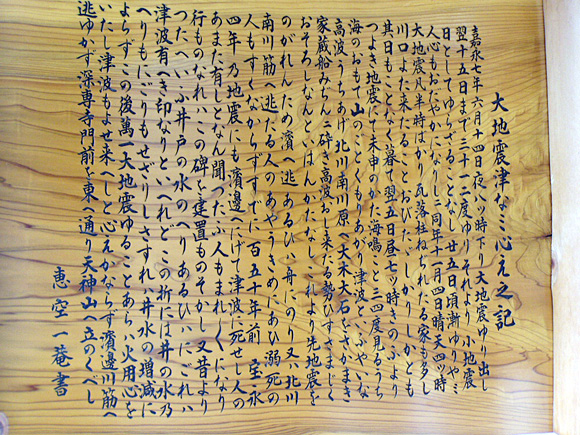 大地震津なミ心え之記
嘉永七年六月十四日夜八ツ時下り大地震ゆり出し
翌十五日まで三十一二度ゆりそれより小地震
日としてゆらざることなし廿五日頃漸ゆりやミ
人心もおだやかになりしに同年十一月四日晴天四ツ時
大地震凡半時ばかり瓦落柱ねぢれたる家も多し
川口よた来たることおびたゝしかりしかとも
其日もことなく暮て翌五日昼七ツ時きのふより
つよき地震にて未申のかた海鳴こと三四度見るうち
海のおもて山のことくもりあがり津波といふやいな
高波うちあげ北川南川原へ大木大石をさかまき
家蔵船みぢんニ砕き高波おし来たる勢ひすさまじく
おそろしなんといはんかたなしこれより先地震を
のがれんため濱へ逃あるひハ舟にのり又ハ北川
南川筋へ逃たる人のあやうきめにあひ溺死の
人もすくなからずすでに百五十年前宝永
四年乃地震にも濱邊へにげて津波に死せし人の
あまた有しとなん聞つたふ人もまれまれになり
行ものなれハこの碑を建置ものそかし又昔より
つたへいふ井戸の水のへりあるひハにごれハ
津波有へき印なりといへれどこの折には井の水乃
へりもにごりもせざりしさすれハ井水の増減に
よらずこの後萬一大地震ゆることあらハ火用心を
いたし津波もよせ来へしと心えかならず濱邊川筋へ
逃ゆかず深専寺門前を東へ通り天神山へ立のくべし
恵空一菴書